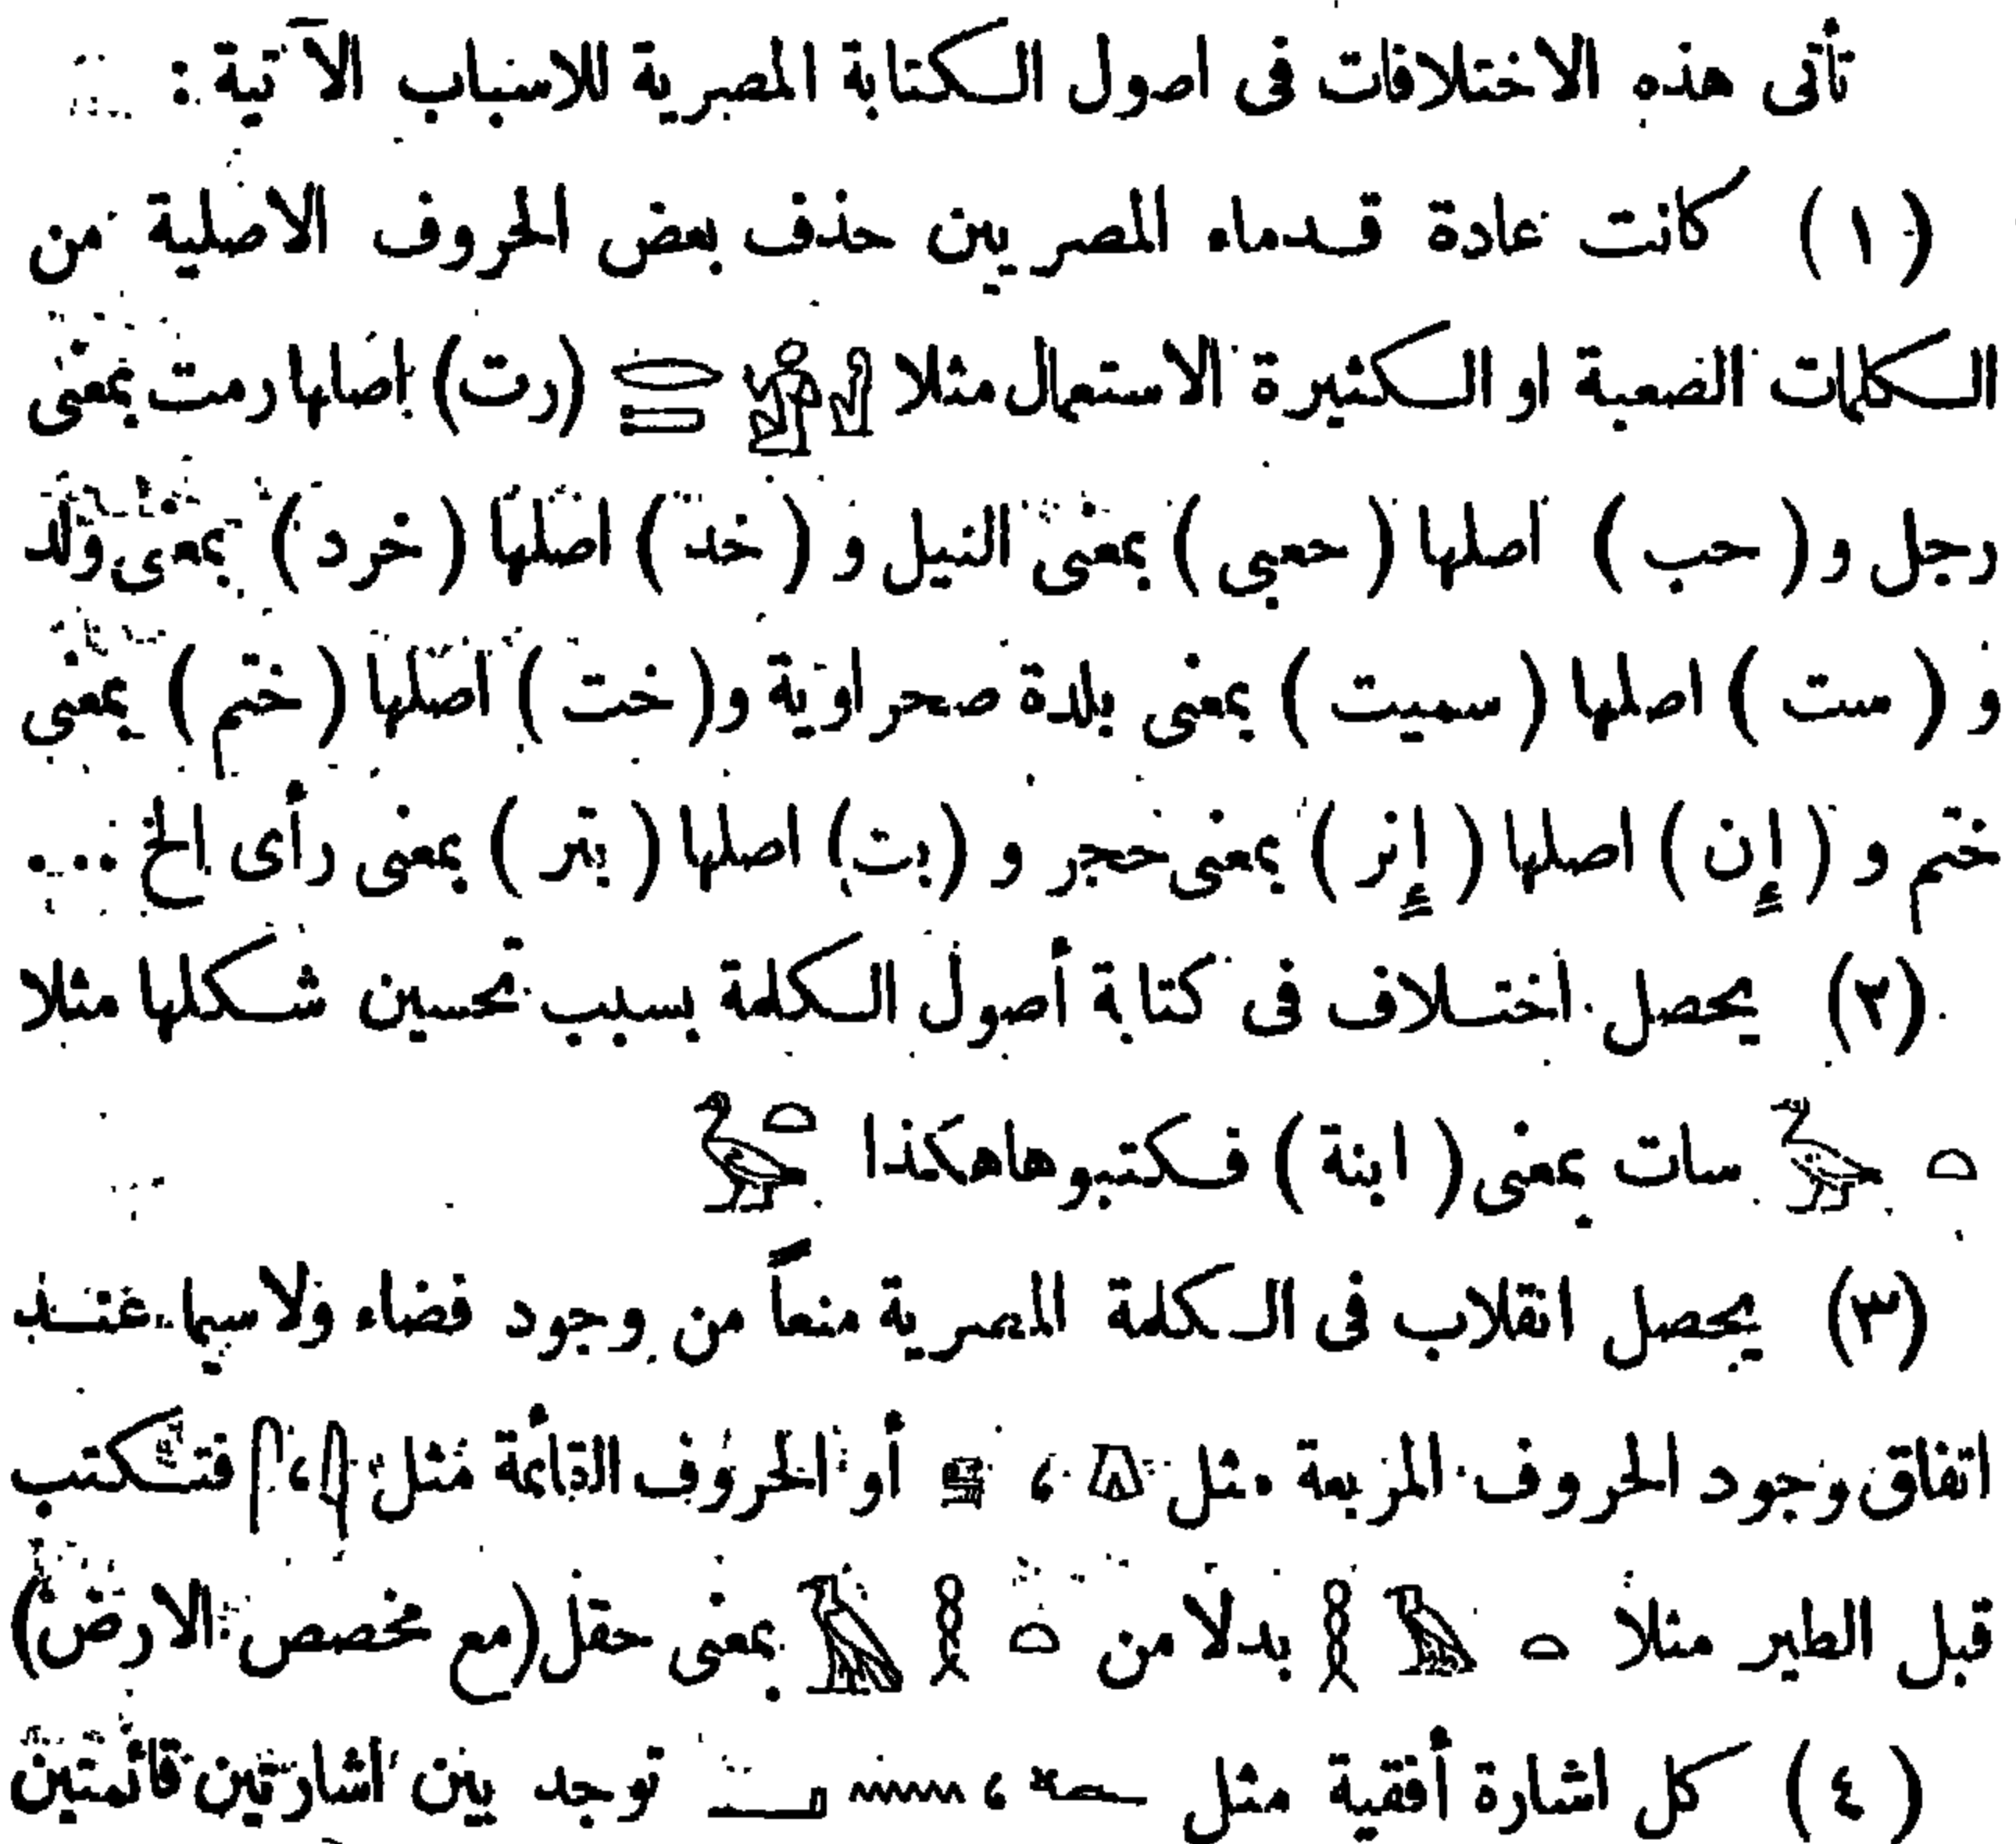 تأتى هذه الاختلافات فى اصول الكتابة المصرية للاسباب الآتية :
(١) كانت عادة قدماء المصريين حذف بعض الحروف الاصلية من
الكلمات الصعبة او الكثيرة الاستعمال مثلا 𓂋𓍿𓀀𓁐 (رت) اصلها رمت بمعنى
رجل و (حب) اصلها (حعبي) بمعنى النيل و (خد) اصلها (خرد) بمعنى ولد
و (ست) اصلها (سميت) بمعنى بلدة صحراوية و (خت) اصلها (ختم) بمعنى
ختم و (إِن) اصلها (إِنر) بمعنى حجر و (بت) اصلها (بتر) بمعنى رأى الخ ...
(٢) يحصل اختلاف فى كتابة أصول الكلمة بسبب تحسين شكلها مثلا
𓏏 𓅭 سات بمعنى (ابنة) فكتبوها هكذا 𓅭𓏏
(٣) يحصل انقلاب فى الكلمة المصرية منعاً من وجود فضاء ولا سيما عند
اتفاق وجود الحروف المربعة مثل 𓎼 ، 𓊪 أو الحروف القائمة مثل 𓇋 ، 𓋴 فتكتب
قبل الطير مثلا 𓏏 𓅓 𓎛 بدلا من 𓏏 𓎛 𓅓 بمعنى حقل (مع مخصص الارض)
(٤) كل اشارة أفقية مثل 𓆑 ، 𓈖 𓂝 توجد بين اشارتين قائمتين